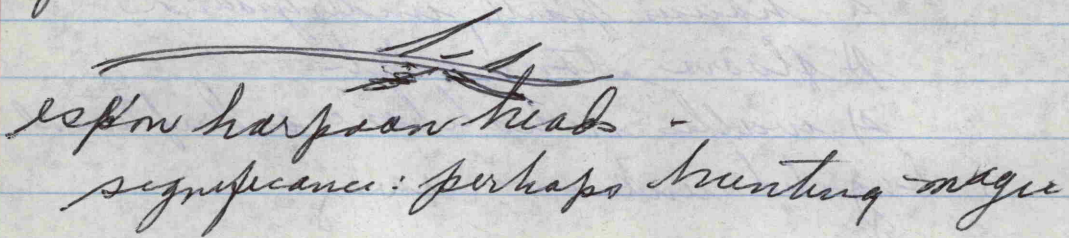 esp'n harpoon heads -
significance: perhaps hunting magic